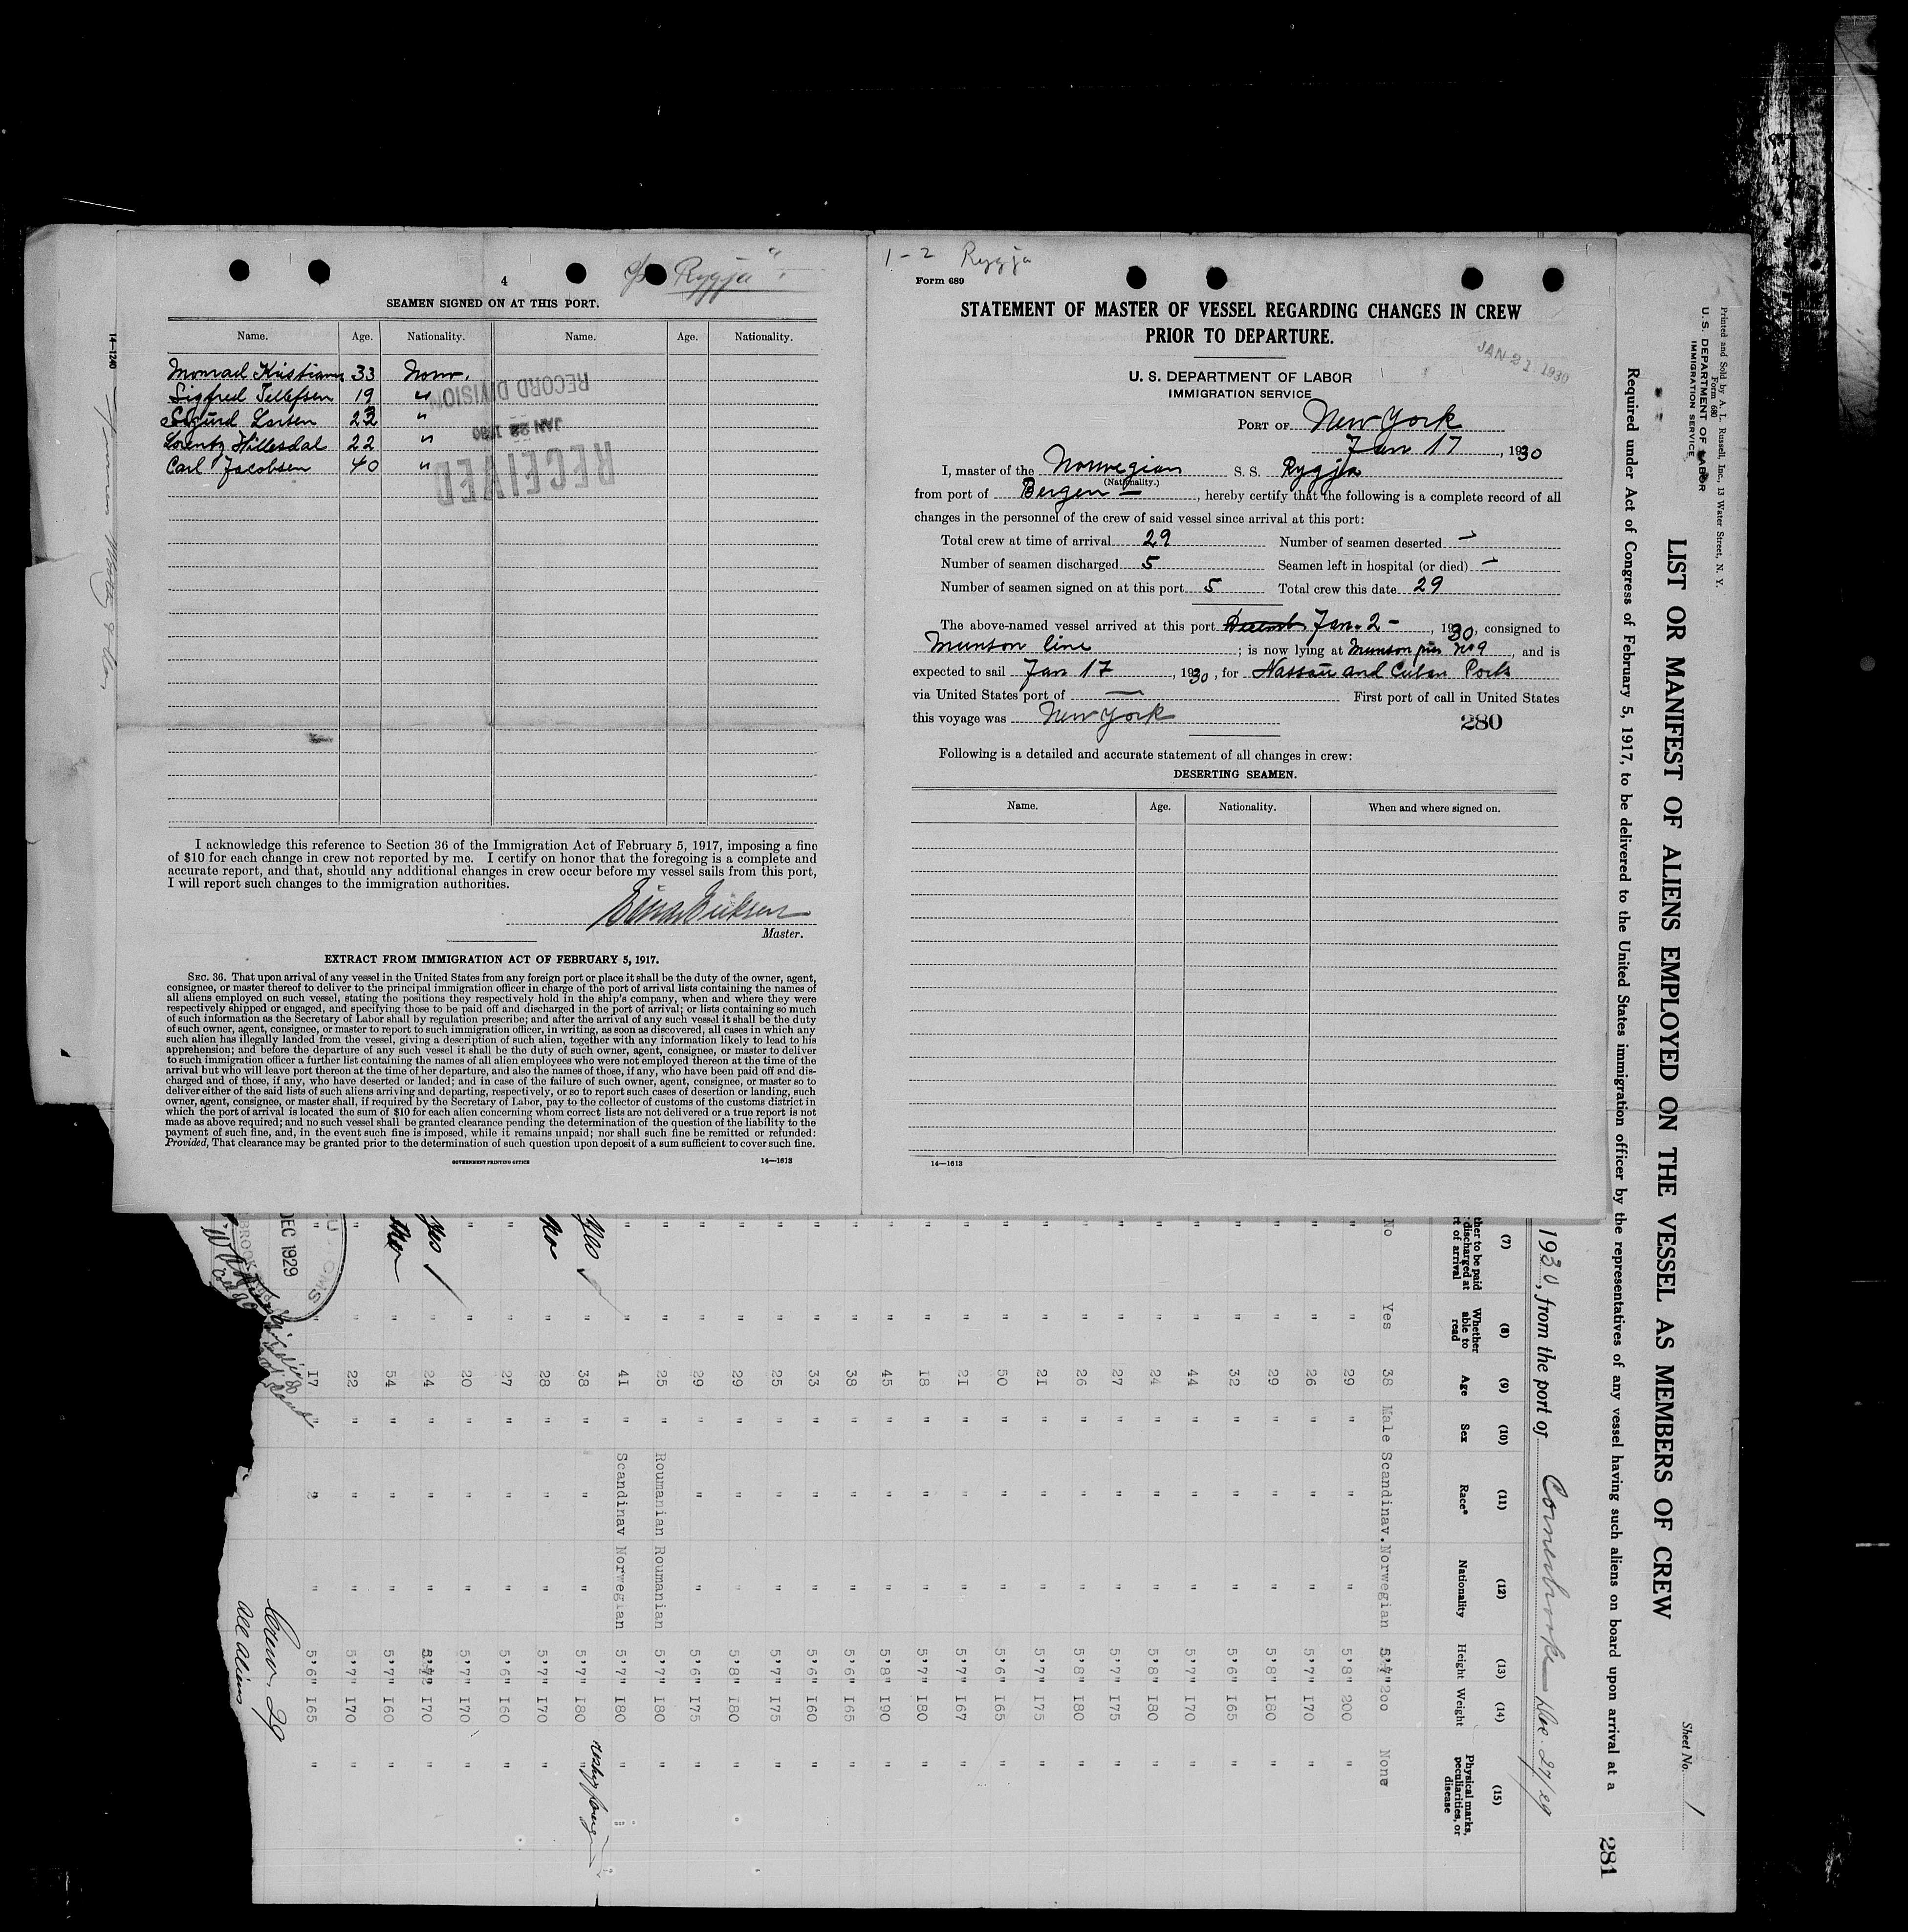 4
S/S "Rygja"
SEAMEN SIGNED ON AT THIS PORT.
Name. Age. Nationality. Name. Age. Nationality.
Monrad Kristians 33 Norw.
Sigfred Tellefsen 19 "
Sigurd Larsen 23 "
Lorentz Hillesdal 22 "
Carl Jacobsen 40 "
RECORD DIVISION
JAN 22 1930
RECEIVED
I acknowledge this reference to Section 36 of the Immigration Act of February 5, 1917, imposing a fine
of $10 for each change in crew not reported by me. I certify on honor that the foregoing is a complete and
accurate report, and that, should any additional changes in crew occur before my vessel sails from this port,
I will report such changes to the immigration authorities.
Einar Eriksen
Master.
EXTRACT FROM IMMIGRATION ACT OF FEBRUARY 5, 1917.
SEC. 36. That upon arrival of any vessel in the United States from any foreign port or place it shall be the duty of the owner, agent,
consignee, or master thereof to deliver to the principal immigration officer in charge of the port of arrival lists containing the names of
all aliens employed on such vessel, stating the positions they respectively hold in the ship's company, when and where they were
respectively shipped or engaged, and specifying those to be paid off and discharged in the port of arrival; or lists containing so much
of such information as the Secretary of Labor shall by regulation prescribe; and after the arrival of any such vessel it shall be the duty
of such owner, agent, consignee, or master to report to such immigration officer, in writing, as soon as discovered, all cases in which any
such alien has illegally landed from the vessel, giving a description of such alien, together with any information likely to lead to his
apprehension; and before the departure of any such vessel it shall be the duty of such owner, agent, consignee, or master to deliver
to such immigration officer a further list containing the names of all alien employees who were not employed thereon at the time of the
arrival but who will leave port thereon at the time of her departure, and also the names of those, if any, who have been paid off and dis-
charged and of those, if any, who have deserted or landed; and in case of the failure of such owner, agent, consignee, or master so to
deliver either of the said lists of such aliens arriving and departing, respectively, or so to report such cases of desertion or landing, such
owner, agent, consignee, or master shall, if required by the Secretary of Labor, pay to the collector of customs of the customs district in
which the port of arrival is located the sum of $10 for each alien concerning whom correct lists are not delivered or a true report is not
made as above required; and no such vessel shall be granted clearance pending the determination of the question of the liability to the
payment of such fine, and, in the event such fine is imposed, while it remains unpaid; nor shall such fine be remitted or refunded:
Provided, That clearance may be granted prior to the determination of such question upon deposit of a sum sufficient to cover such fine.
GOVERNMENT PRINTING OFFICE 14—1613
14—1240
1-2 Rygja
Form 689
STATEMENT OF MASTER OF VESSEL REGARDING CHANGES IN CREW
PRIOR TO DEPARTURE.
JAN 21 1930
U. S. DEPARTMENT OF LABOR
IMMIGRATION SERVICE
PORT OF New York
Jan 17, 1930
I, master of the Norwegian S. S. Rygja
(Nationality.)
from port of Bergen, hereby certify that the following is a complete record of all
changes in the personnel of the crew of said vessel since arrival at this port:
Total crew at time of arrival 29 Number of seamen deserted —
Number of seamen discharged 5 Seamen left in hospital (or died) —
Number of seamen signed on at this port 5 Total crew this date 29
The above-named vessel arrived at this port Jan. 2 -, 1930, consigned to
Munson line; is now lying at Munson pier No 9, and is
expected to sail Jan 17, 1930, for Nassau and Cuban Ports
via United States port of — First port of call in United States
this voyage was New York
280
Following is a detailed and accurate statement of all changes in crew:
DESERTING SEAMEN.
Name. Age. Nationality. When and where signed on.
14—1613
Printed and Sold by A. L. Russell, Inc., 13 Water Street, N. Y.
Form 680
U. S. DEPARTMENT OF LABOR
IMMIGRATION SERVICE
Sheet No. 1
LIST OR MANIFEST OF ALIENS EMPLOYED ON THE VESSEL AS MEMBERS OF CREW
Required under Act of Congress of February 5, 1917, to be delivered to the United States immigration officer by the representatives of any vessel having such aliens on board upon arrival at a
281
1930, from the port of Cornerbrook Dec. 27/29
(7) (8) (9) (10) (11) (12) (13) (14) (15)
ther to be paid discharged at rt of arrival Whether able to read Age Sex Race* Nationality Height Weight Physical marks, peculiarities, or disease
No Yes 38 Male Scandinav. Norwegian 5'7" 200 None
" " 29 " " " 5'8" 200 "
" " 26 " " " 5'7" 170 "
" " 29 " " " 5'8" 180 "
" " 32 " " " 5'6" 165 "
" " 44 " " " 5'7" 170 "
" " 24 " " " 5'8" 180 "
" " 27 " " " 5'7" 175 "
" " 26 " " " 5'8" 180 "
" " 21 " " " 5'7" 175 "
" " 50 " " " 5'6" 165 "
" " 21 " " " 5'7" 167 "
" " 18 " " " 5'7" 180 "
" " 45 " " " 5'8" 190 "
" " 38 " " " 5'6" 165 "
" " 33 " " " 5'6" 160 "
" " 25 " " " 5'7" 175 "
" " 29 " " " 5'8" 180 "
" " 29 " " " 5'6" 175 "
" " 25 " Roumanian Roumanian 5'7" 180 "
" " 41 " Scandinav Norwegian 5'7" 180 "
Yes " 38 " " " 5'7" 180 "
No " 28 " " " 5'7" 170 "
" " 27 " " " 5'6" 160 "
" " 20 " " " 5'7" 170 "
Yes " 24 " " " 5'7" 170 "
No " 54 " " " 5'7" 160 "
" " 22 " " " 5'7" 170 "
" " 17 " " " 5'6" 165 "
DEC 1929
Crew 29
all aliens